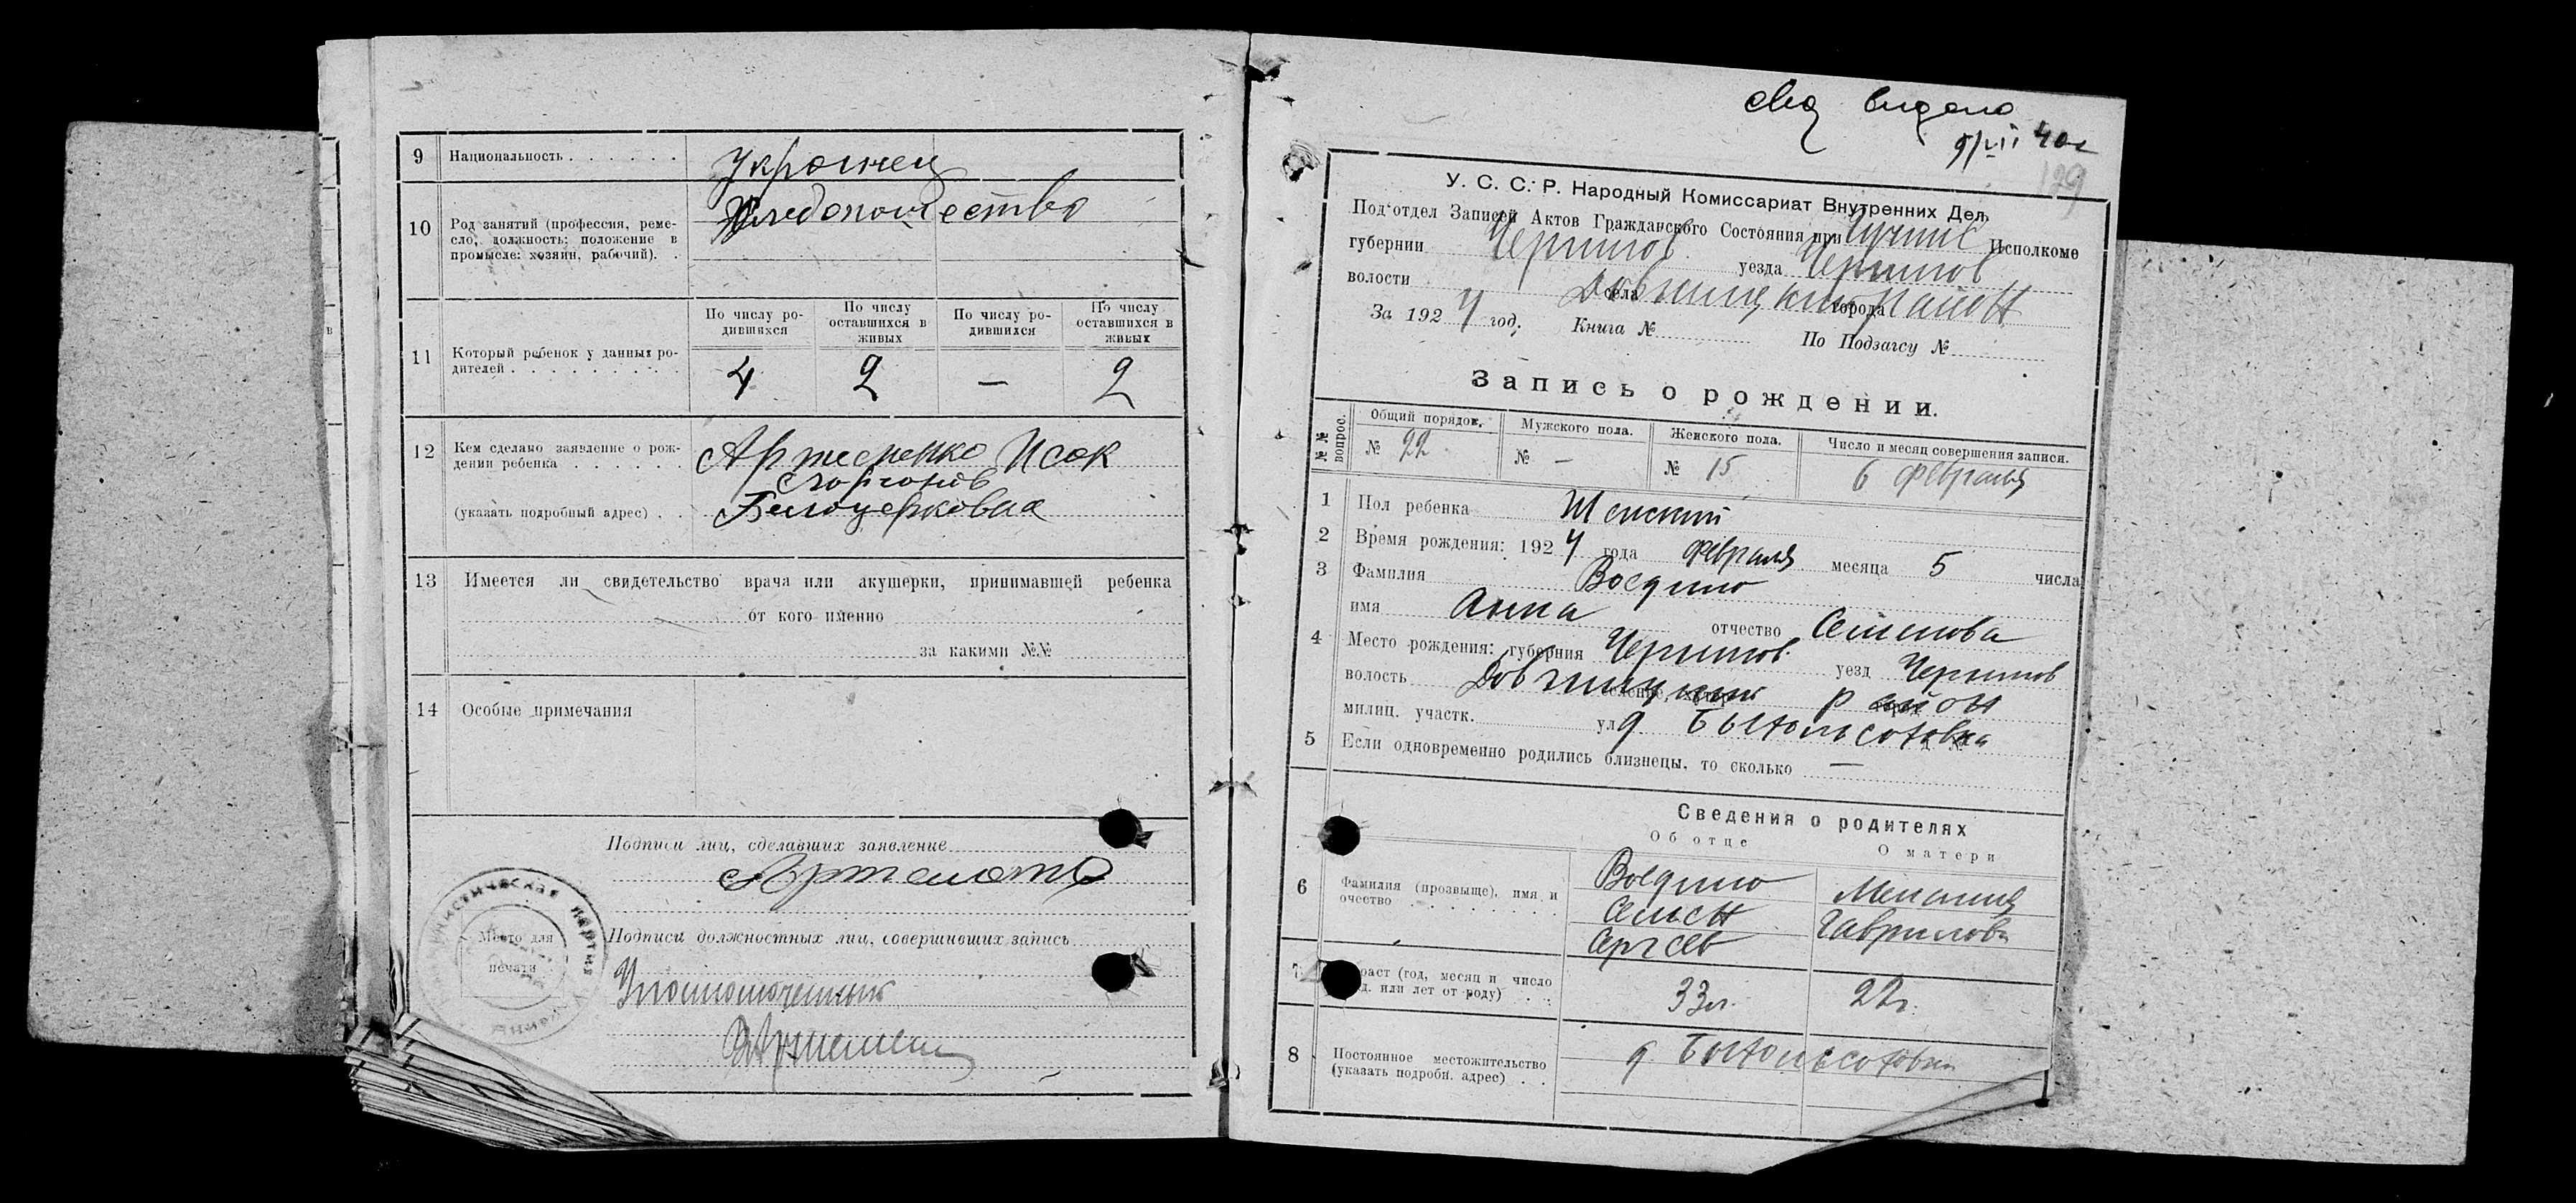 9 Национальность
Украинец
10 Род занятий (профессия, реме-
сло, должность: положение в
промысле: хозяин, рабочий).
Хлебопашество
11 Который ребенок у данных ро-
дителей
По числу ро-
дившихся
По числу
оставшихся в
живых
По числу ро-
дившихся
По числу
оставшихся в
живых
4 2 — 2
12 Кем сделано заявление о рож-
дении ребенка
(указать подробный адрес)
Артеменко Исак
Белоцерковка
13 Имеется ли свидетельство врача или акушерки, принимавшей ребенка
от кого именно
за какими №№
14 Особые примечания
Подписи лиц, сделавших заявление
Место для
печати
Подписи должностных лиц, совершивших запись
Уполномоченный
видано
5/VII 40г
129
У. С. С. Р. Народный Комиссариат Внутренних Дел.
Под'отдел Записей Актов Гражданского Состояния при Исполкоме
губернии Чернигов уезда Чернигов
волости села города район
За 1924 год. Книга № По Подзагсу №
Запись о рождении.
№№ вопрос.
Общий порядок.
№ 22
Мужского пола.
№ —
Женского пола.
№ 15
Число и месяц совершения записи.
6 февраля
1 Пол ребенка Женский
2 Время рождения: 1924 года февраля месяца 5 числа
3 Фамилия Воедило
имя Анна отчество Семенова
4 Место рождения: губерния Чернигов уезд Чернигов
волость район
милиц. участк. ул. д
5 Если одновременно родились близнецы, то сколько —
Сведения о родителях
Об отце
О матери
6 Фамилия (прозвище), имя и
очество
Воедило
Семен
Сергеев
Мелания
Гаврилова
7 раст (год, месяц и число
д. или лет от роду)
33л. 22г.
8 Постоянное местожительство
(указать подробн. адрес)
д.